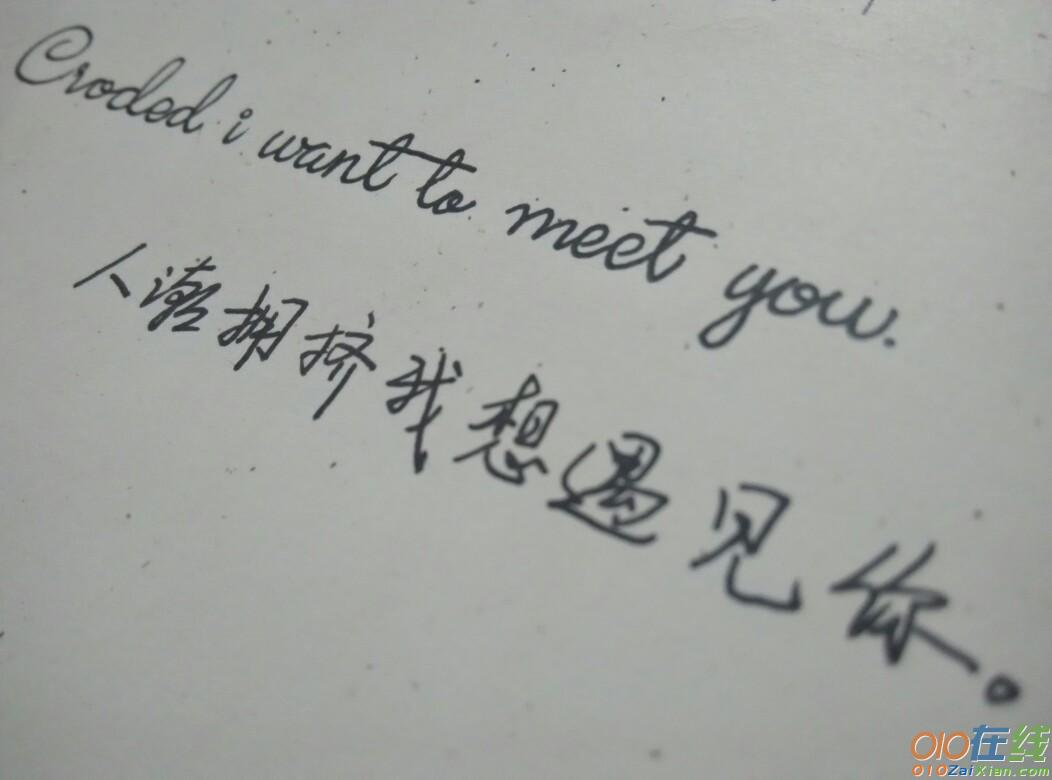 Croded i want to meet you.
人潮拥挤我想遇见你。
010在线
010ZaiXian.com